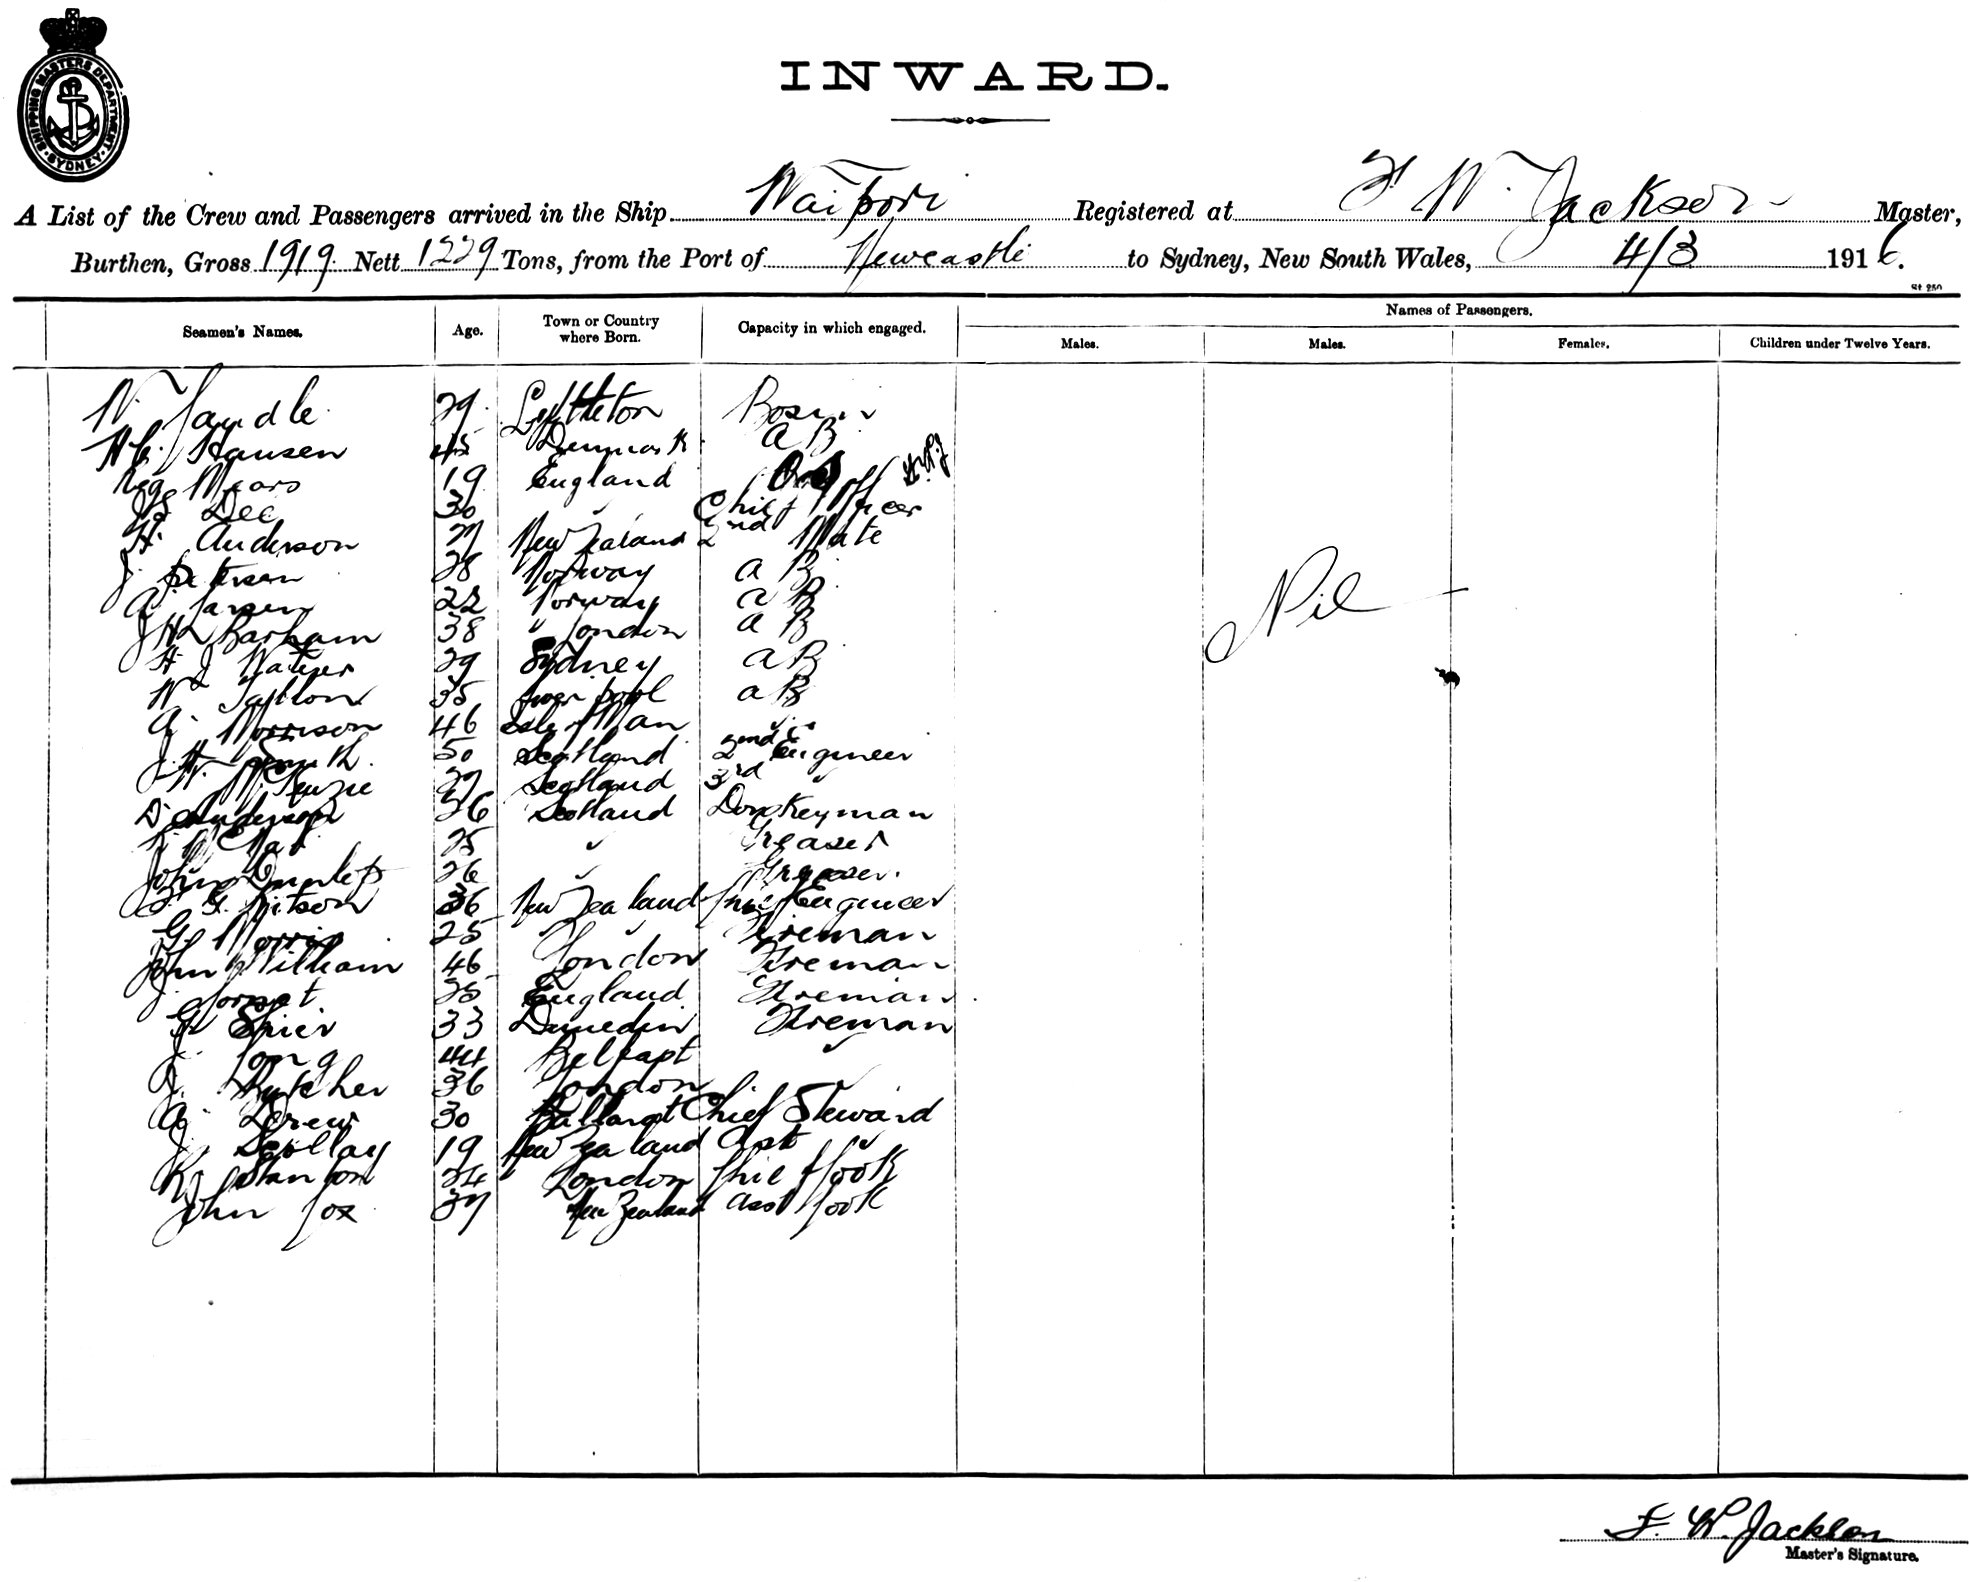 SHIPPING MASTERS DEPARTMENT · SYDNEY ·
INWARD.
A List of the Crew and Passengers arrived in the Ship Waipori Registered at F W. Jackson Master,
Burthen, Gross 1919 Nett 1229 Tons, from the Port of Newcastle to Sydney, New South Wales, 4/3 1916.
St 250
Names of Passengers.
Seamen's Names. Age. Town or Country where Born. Capacity in which engaged. Males. Males. Females. Children under Twelve Years.
W. 29 Lyttleton Bosun
H C. Hansen 45 Denmark A B
Reg Mears 19 England
Dee 30 " Chief Officer
H. Anderson 27 New Zealand 2nd Mate
J. Petersen 28 Norway A B
A. Larsen 22 Norway A B
J H L Barham 38 " London A B
H J 29 Sydney A B
W 35 Liverpool A B
A. Morrison 46 Isle of Man
J. H. Smith. 50 Scotland 2nd Engineer
McKenzie 27 Scotland 3rd
D. Anderson 36 Scotland Donkeyman
25 " Greaser
John Dunlop 26 Greaser.
Kitson 36 New Zealand Chief Engineer
G. Morris 25 " " Fireman
John William 46 London Fireman
J. 25 England Fireman
G. Spier 33 Dunedin Fireman
J. Long 44 Belfast "
J. Butcher 36 London
A. Drew 30 Ballarat Chief Steward
J. Scollay 19 New Zealand Ast "
R. Stanford 24 " London Chief Cook
John Cox 37 New Zealand Asst Cook
Nil
F. W. Jackson
Master's Signature.